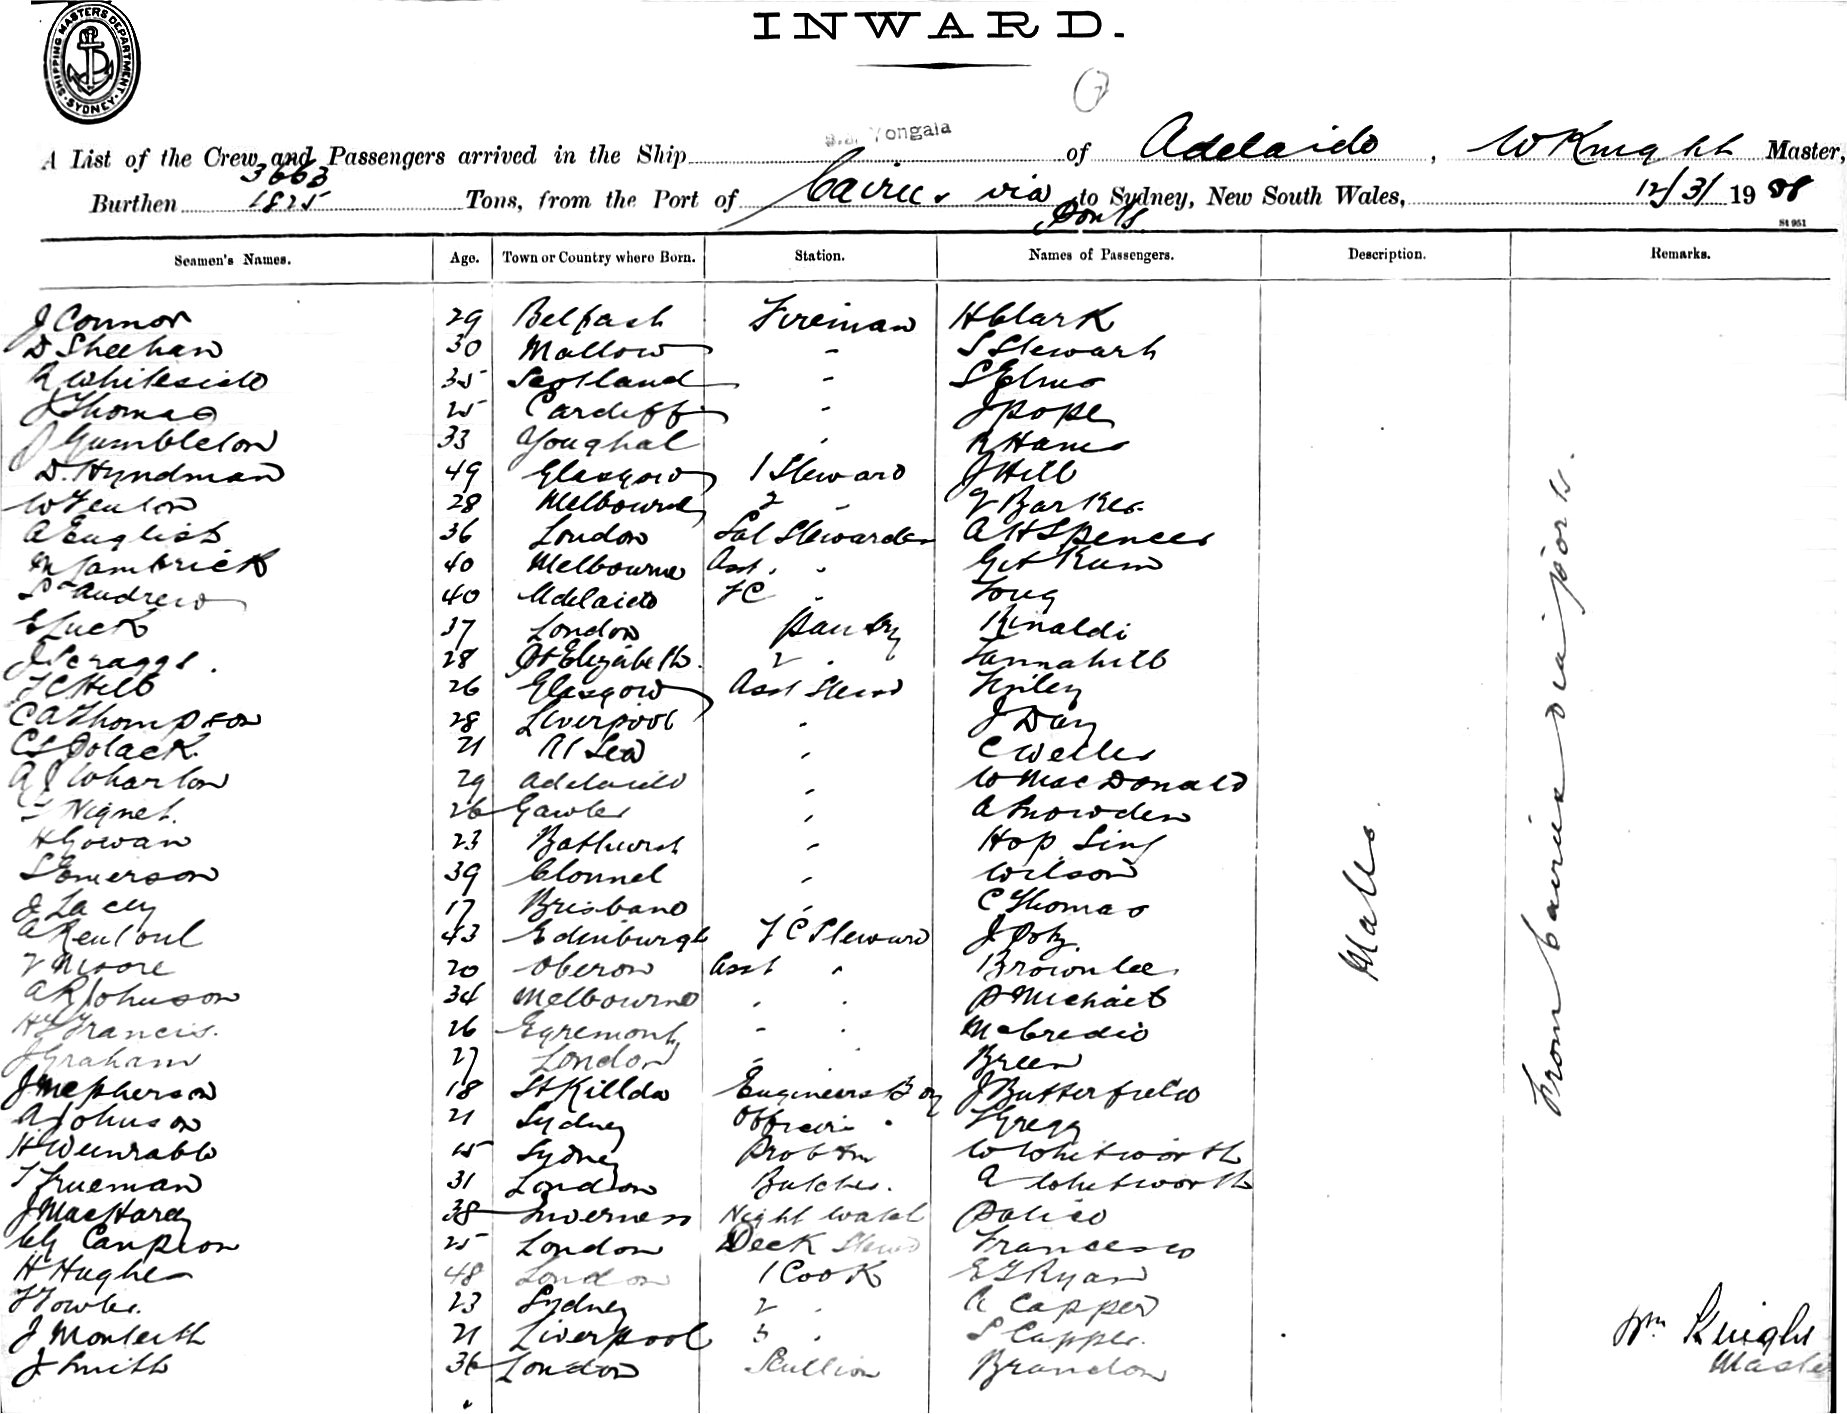 INWARD.
SHIPPING MASTERS DEPARTMENT. SYDNEY.
7
A List of the Crew and Passengers arrived in the Ship S.S. Yongala of Adelaide, W Knight Master,
3663
Burthen 1825 Tons, from the Port of Cairns via to Sydney, New South Wales, 12/3/1908
Ports
St 951
Seamen's Names. Age. Town or Country where Born. Station. Names of Passengers. Description. Remarks.
J Connor 29 Belfast Fireman H Clark
D Sheehan 30 Mallow " S Stewart
R Whiteside 35 Scotland " S Elmo
J Thomas 25 Cardiff " J Pope
J Gumbleton 33 Youghal " R Hames
D. Hyndman 49 Glasgow 1 Steward J Hill
W Fenton 28 Melbourne 2 " Barker
A English 36 London Sal Stewardess A H Spencer
M Lambrick 40 Melbourne Asst. " Get Kum
St Andrew 40 Adelaide FC " Tong
E Luck 37 London Pantry Rinaldi
J Scraggs. 28 Pt Elizabeth. 2 " Tannahill
F C Hill 26 Glasgow Asst Stewd
C A Thompson 28 Liverpool " J Day
C S Polack. 21 At Sea " C Weller
A J Wharton 29 Adelaide " W MacDonald
Nignet. 26 Gawler " A Snowden
H Gowan 23 Bathurst " Hop Sing
S Emerson 39 Clonmel " Wilson
J Lacey 17 Brisbane " C Thomas
A Rentoul 43 Edinburgh F C Steward J
Moore 20 Oberon Asst " Brownlee
A R Johnson 34 Melbourne " " P Michael
H F Francis. 26 Egremont " " McCredie
J Graham 27 London " " Breen
J McPherson 18 St Killda Engineers Boy J Butterfield
A Johnson 21 Sydney Officers " T Gregg
H Wenrable 15 Sydney Prob W Whitworth
T Trueman 31 London Butcher. A Whitworth
J MacHardy 38 Inverness Night Watch Patico
Campion 25 London Deck Stewd Francesco
H Hughes 48 London 1 Cook E F Ryan
F Fowler. 23 Sydney 2 " A Capper
J Monteith 21 Liverpool 3 " S Capper.
J Smith 36 London Scullion Brandon
Malls.
From Cairns via ports.
Wm Knight
Master